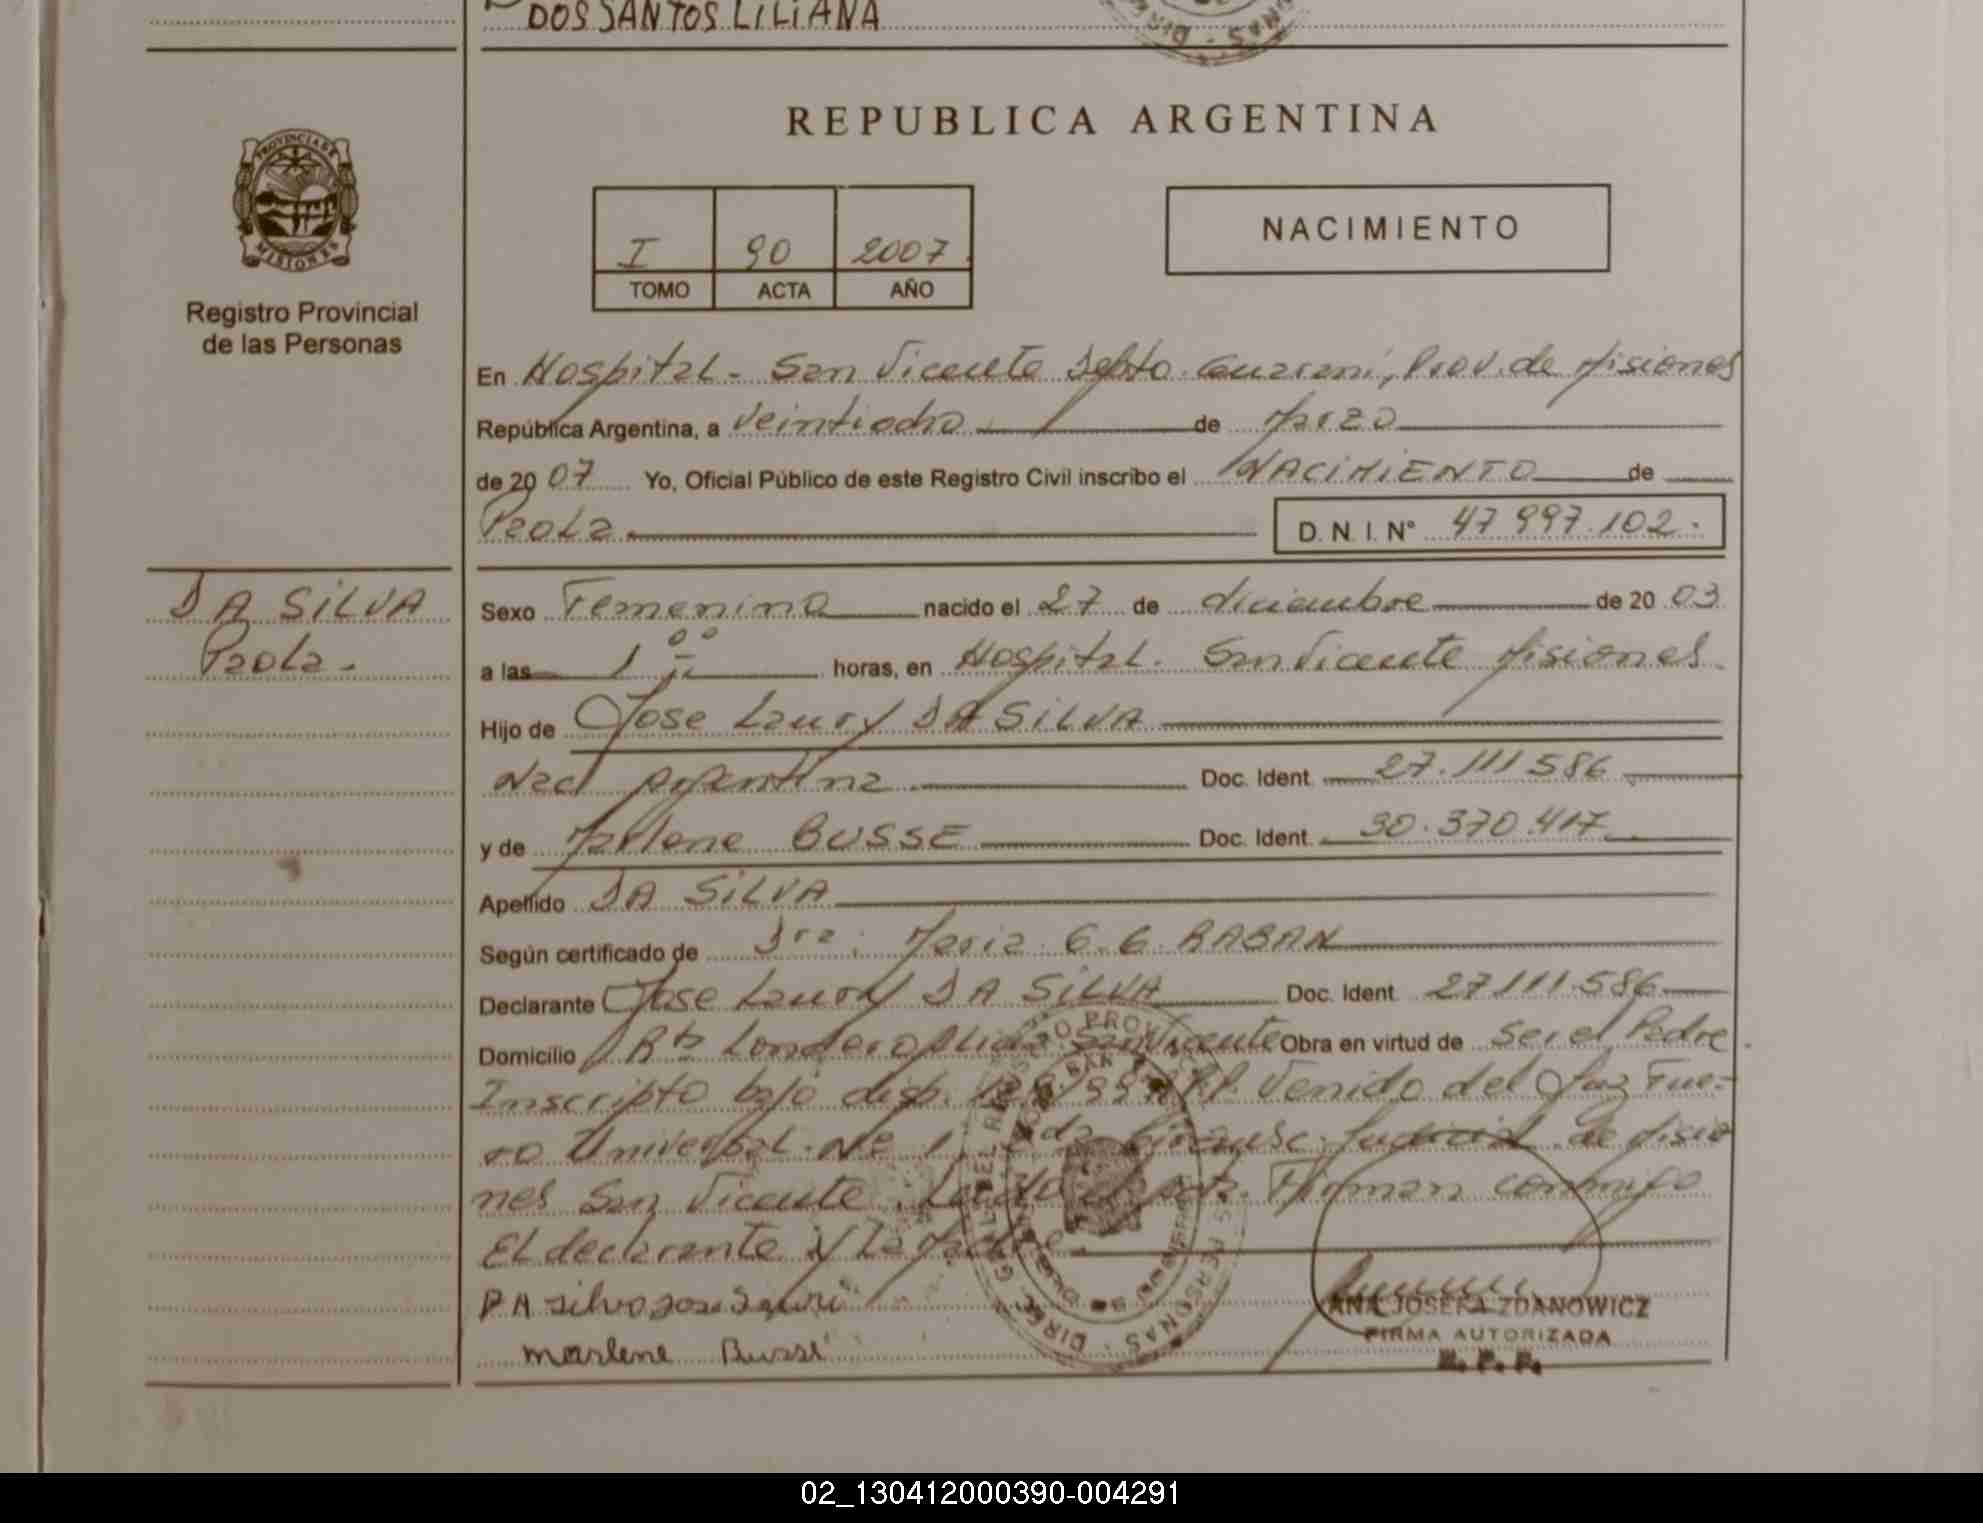 DOS SANTOS LILIANA
REPUBLICA ARGENTINA
PROVINCIA DE
MISIONES
Registro Provincial
de las Personas
I 90 2007
TOMO ACTA AÑO
NACIMIENTO
En Hospital - San Vicente Depto. Guarani, Prov. de Misiones
República Argentina, a veintiocho de Marzo
de 2007 Yo, Oficial Público de este Registro Civil inscribo el NACIMIENTO de
Paola D. N. I. N° 47 997.102.
DA SILVA
Paola.
Sexo Femenino nacido el 27 de diciembre de 20 03
a las 1 00 horas, en Hospital. San Vicente Misiones
Hijo de Jose Laury DA SILVA
Nacl Argentina Doc. Ident. 27.111 586
y de Marlene BUSSE Doc. Ident. 30.370.417
Apellido DA SILVA
Según certificado de Dra. Maria G. G. RABAN
Declarante Jose Laury DA SILVA Doc. Ident. 27111.586
Domicilio San Vicente Obra en virtud de ser el Padre
Inscripto bajo disp. Venido del Juz Fue-
ro Universal. Nº 1 Judicial de Misio
nes San Vicente. Firman conmigo
El declarante y la Madre
DA silva Jose Lauri
marlene Busse
ANA JOSEFA ZDANOWICZ
FIRMA AUTORIZADA
R. P. P.
02_130412000390-004291